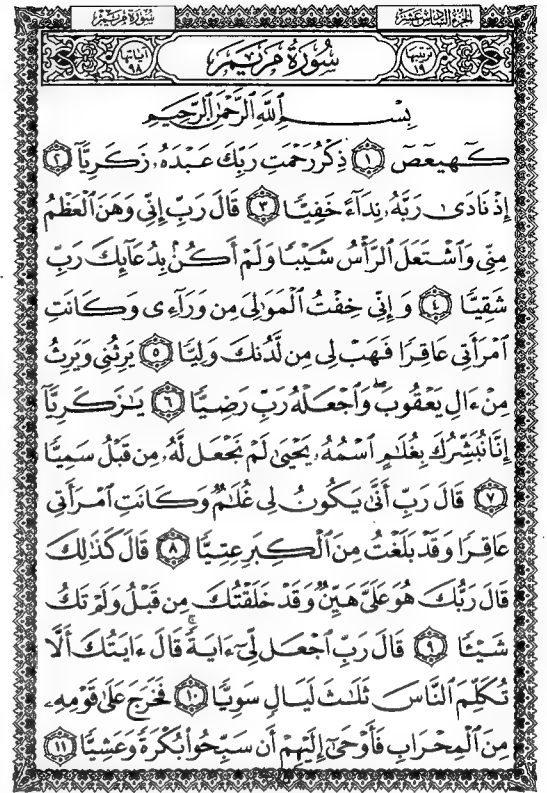 الجزء السادس عشر
سورة مريم
ترتيبها ١٩
سُورَةُ مَرْيَمَ
آياتها ٩٨
بِسْمِ ٱللَّهِ ٱلرَّحْمَٰنِ ٱلرَّحِيمِ
كٓهيعٓصٓ ١ ذِكْرُ رَحْمَتِ رَبِّكَ عَبْدَهُۥ زَكَرِيَّآ ٢
إِذْ نَادَىٰ رَبَّهُۥ نِدَآءً خَفِيًّا ٣ قَالَ رَبِّ إِنِّى وَهَنَ ٱلْعَظْمُ
مِنِّى وَٱشْتَعَلَ ٱلرَّأْسُ شَيْبًا وَلَمْ أَكُنۢ بِدُعَآئِكَ رَبِّ
شَقِيًّا ٤ وَإِنِّى خِفْتُ ٱلْمَوَٰلِىَ مِن وَرَآءِى وَكَانَتِ
ٱمْرَأَتِى عَاقِرًا فَهَبْ لِى مِن لَّدُنكَ وَلِيًّا ٥ يَرِثُنِى وَيَرِثُ
مِنْ ءَالِ يَعْقُوبَ ۖ وَٱجْعَلْهُ رَبِّ رَضِيًّا ٦ يَٰزَكَرِيَّآ
إِنَّا نُبَشِّرُكَ بِغُلَٰمٍ ٱسْمُهُۥ يَحْيَىٰ لَمْ نَجْعَل لَّهُۥ مِن قَبْلُ سَمِيًّا
٧ قَالَ رَبِّ أَنَّىٰ يَكُونُ لِى غُلَٰمٌ وَكَانَتِ ٱمْرَأَتِى
عَاقِرًا وَقَدْ بَلَغْتُ مِنَ ٱلْكِبَرِ عِتِيًّا ٨ قَالَ كَذَٰلِكَ
قَالَ رَبُّكَ هُوَ عَلَىَّ هَيِّنٌ وَقَدْ خَلَقْتُكَ مِن قَبْلُ وَلَمْ تَكُ
شَيْـًٔا ٩ قَالَ رَبِّ ٱجْعَل لِّىٓ ءَايَةً ۚ قَالَ ءَايَتُكَ أَلَّا
تُكَلِّمَ ٱلنَّاسَ ثَلَٰثَ لَيَالٍ سَوِيًّا ١٠ فَخَرَجَ عَلَىٰ قَوْمِهِۦ
مِنَ ٱلْمِحْرَابِ فَأَوْحَىٰٓ إِلَيْهِمْ أَن سَبِّحُوا۟ بُكْرَةً وَعَشِيًّا ١١